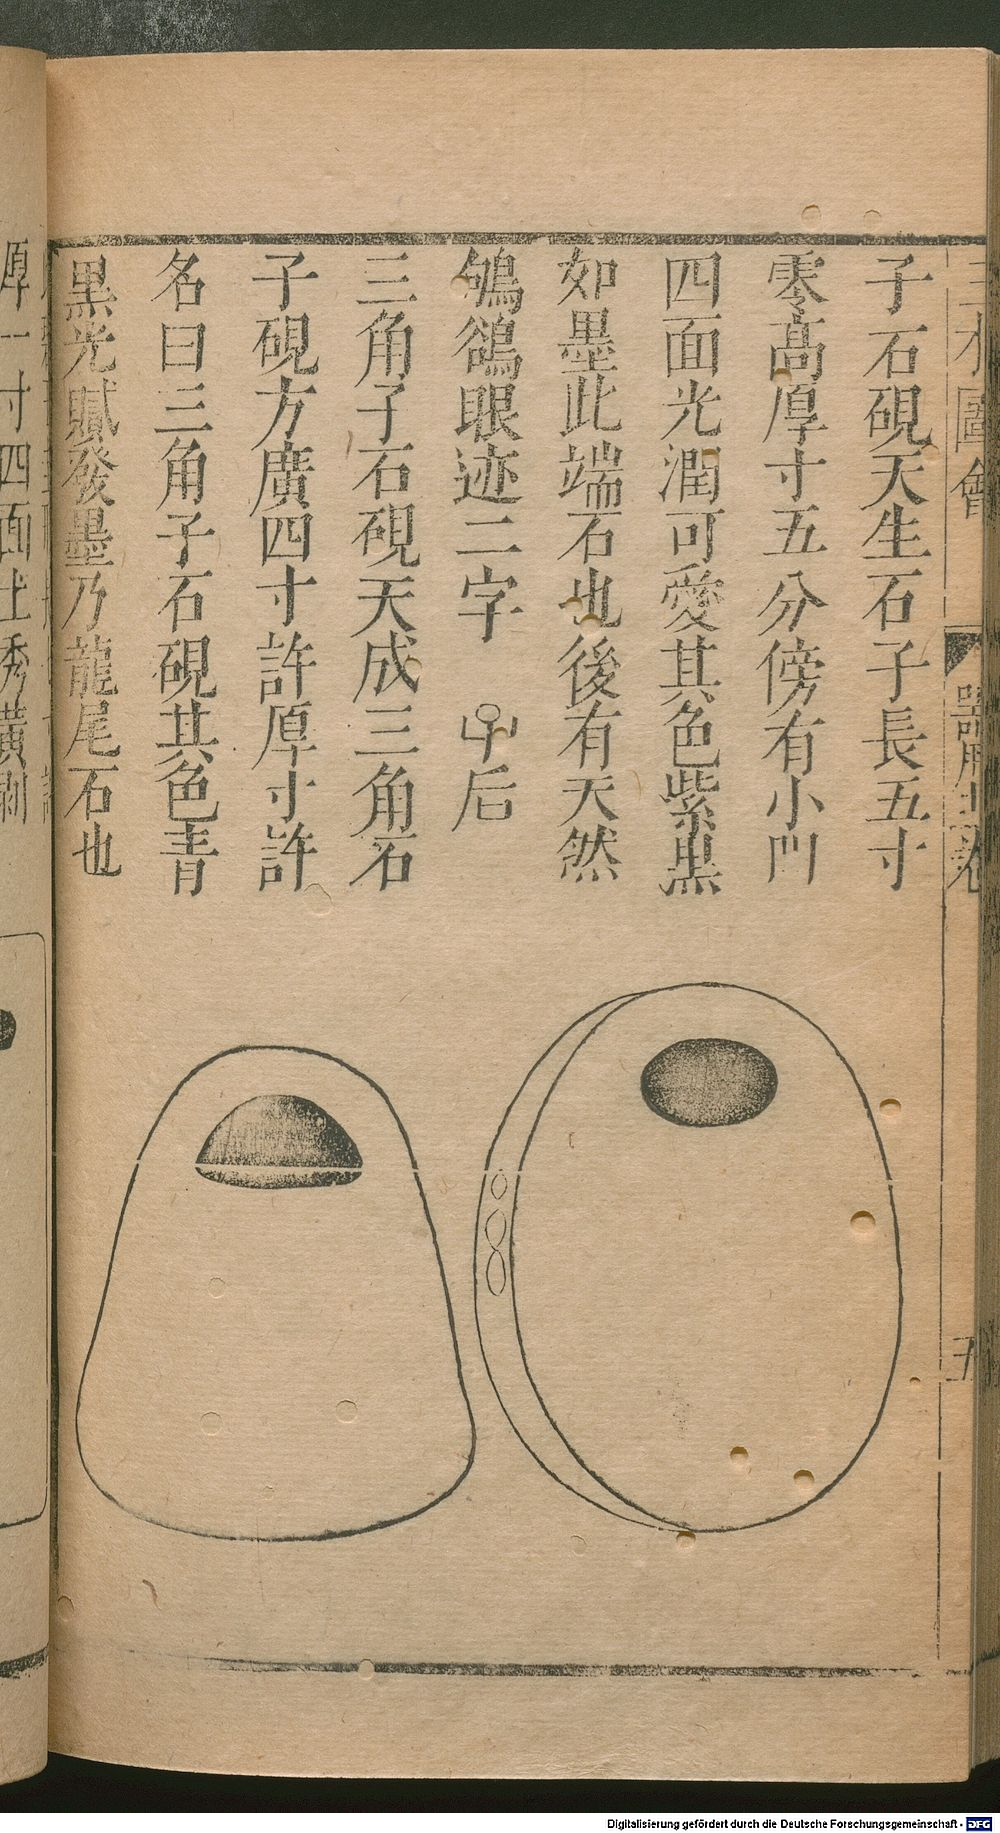 三才圖會
器用
五
子石硯天生石子長五寸
零高厚寸五分傍有小門
四面光潤可愛其色紫黑
如墨此端石也後有天然
鴝鵒眼迹二字 后
三角子石硯天成三角石
子硯方廣四寸許厚寸許
名曰三角子石硯其色青
黑光膩發墨乃龍尾石也
厚一寸四面土秀黃剥
Digitalisierung gefördert durch die Deutsche Forschungsgemeinschaft - DFG